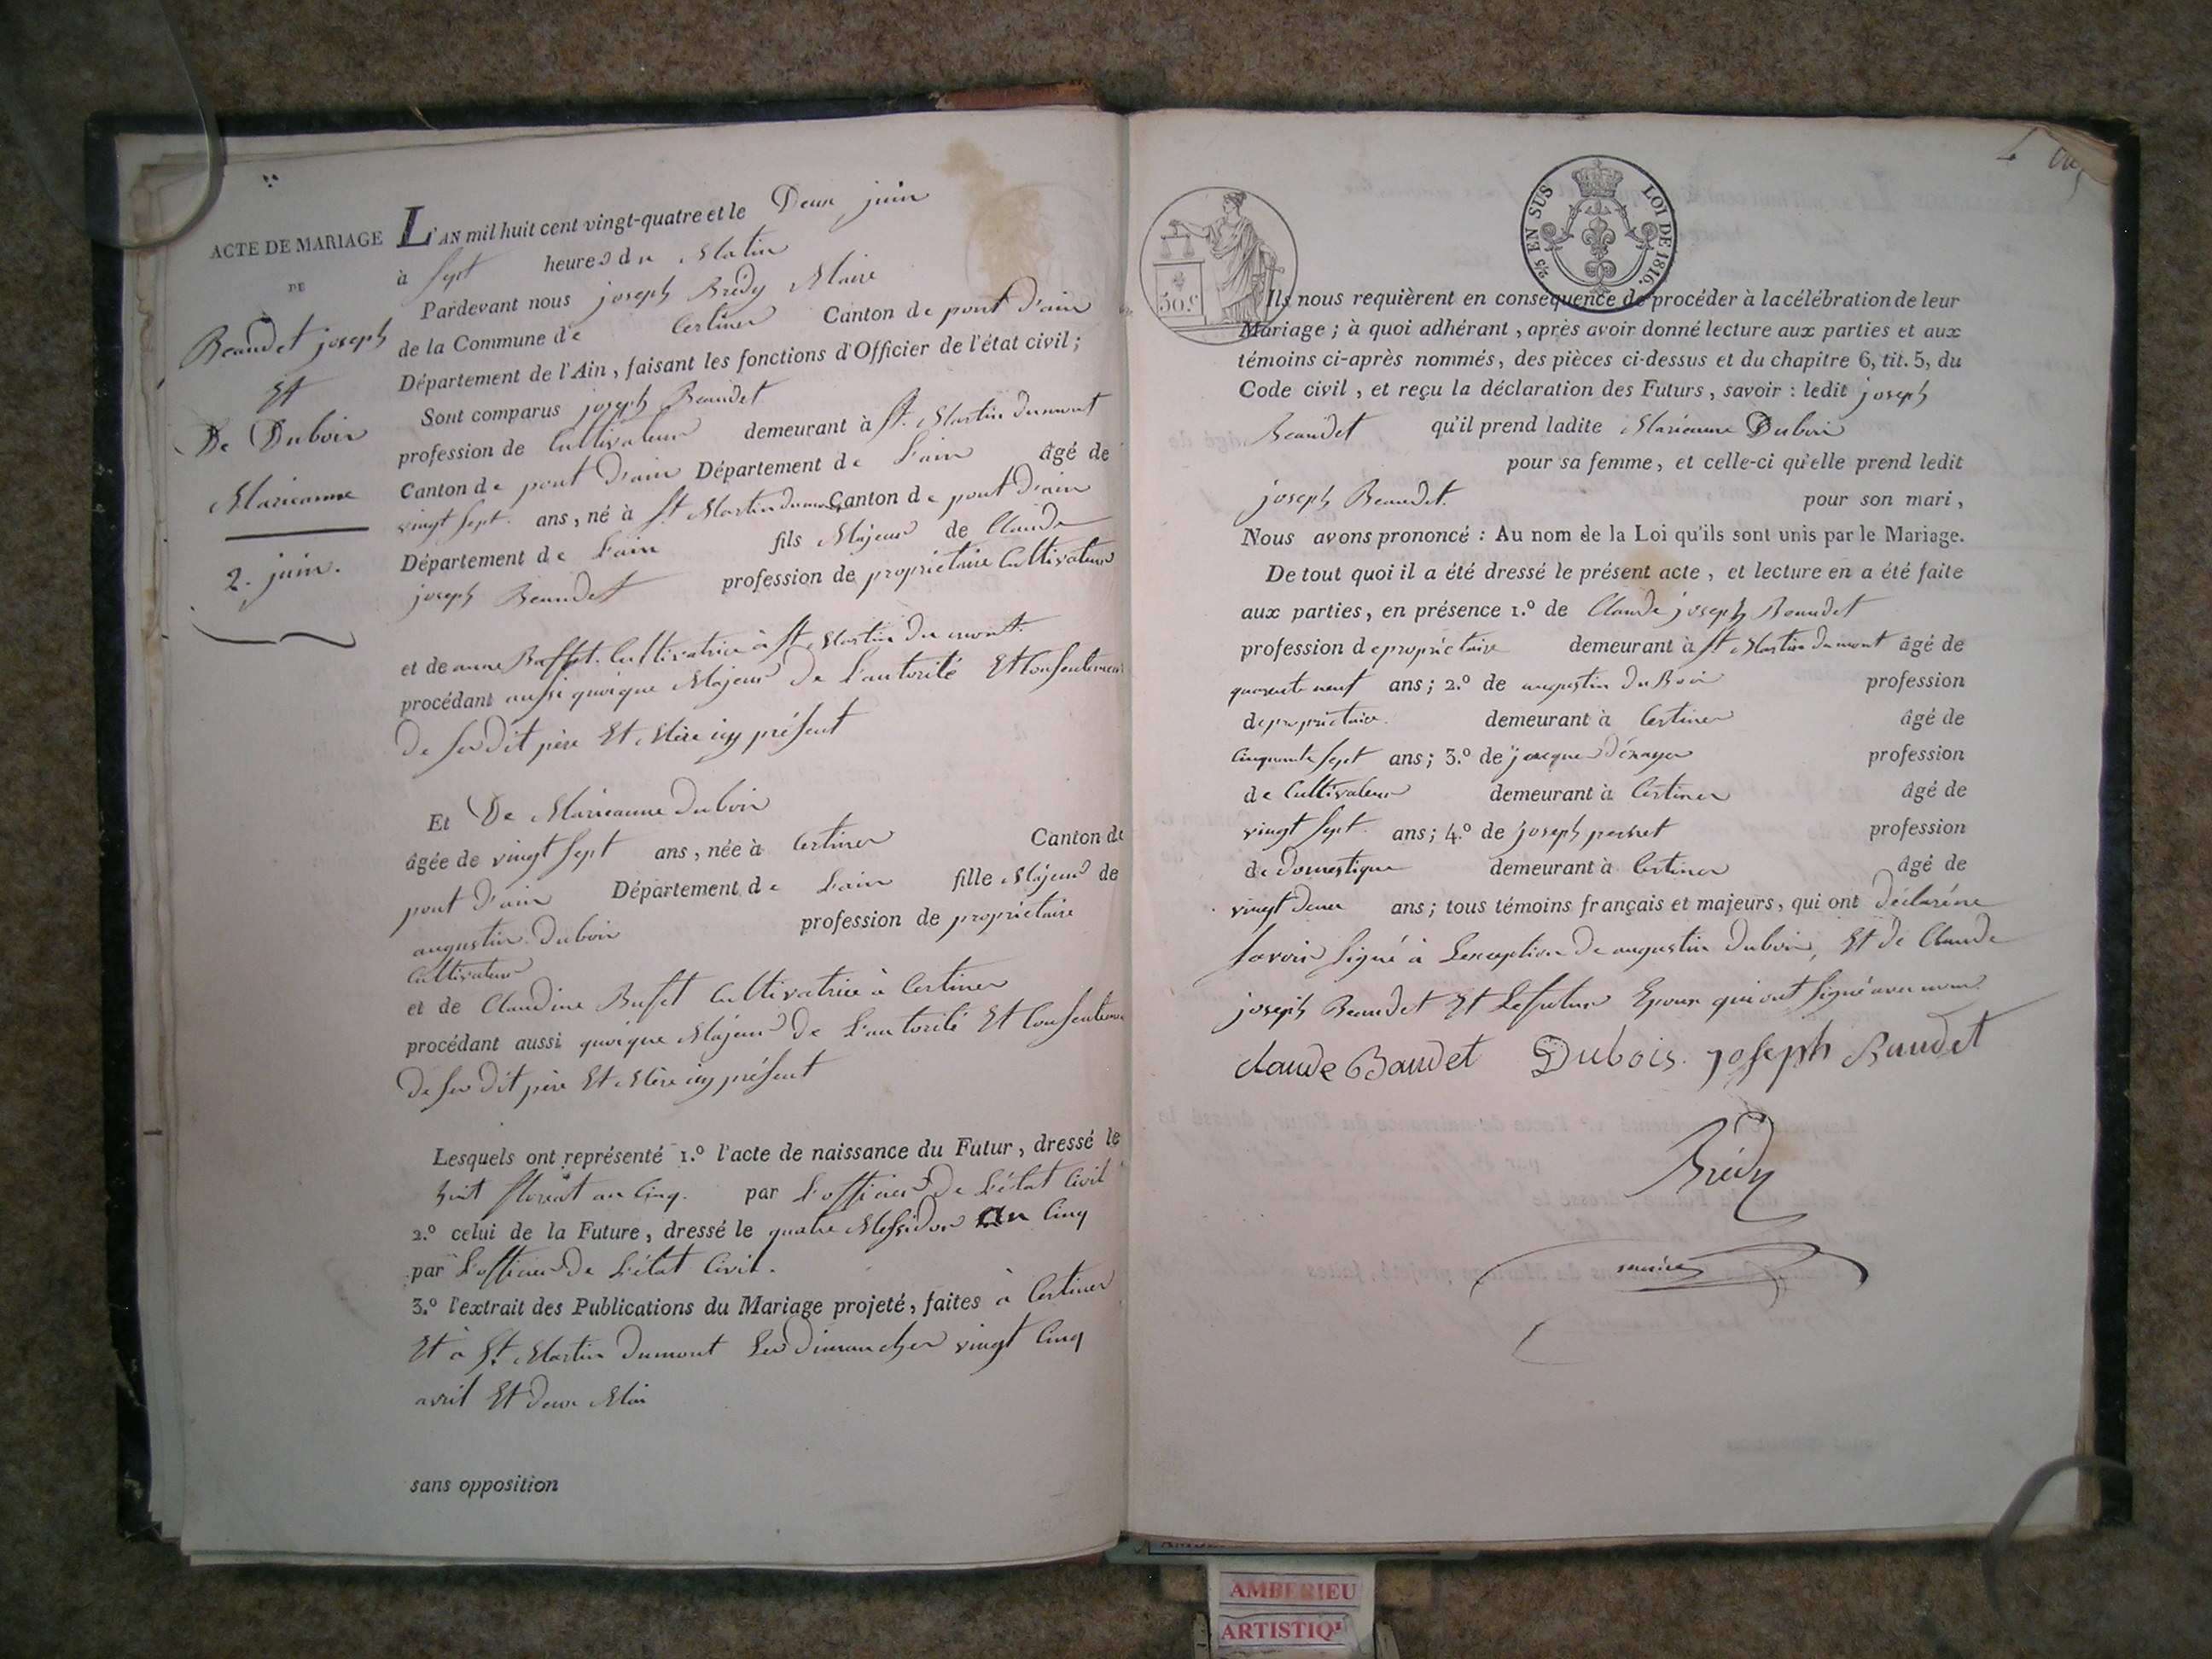 ACTE DE MARIAGE
DE
Beaudet joseph
Et
De Duboir
Marieanne
2. juin.
L'AN mil huit cent vingt-quatre et le Deux juin
à Sept heures du Matin
Pardevant nous joseph Brédy Maire
de la Commune de Certines Canton de pont d'ain
Département de l'Ain, faisant les fonctions d'Officier de l'état civil;
Sont comparus joseph Beaudet
profession de Cultivateur demeurant à St. Martin dumont
Canton de pont d'ain Département de L'ain âgé de
vingt Sept. ans, né à St Martin dumont Canton de pont d'ain
Département de L'ain fils Majeur de Claude
joseph Beaudet profession de propriétaire Cultivateur
et de anne Buffet. Cultivatrice à St Martin du mont.
procédant aussi quoique Majeur De L'autorité Et Consentement
De Ses Dit père Et Mère icy présent
Et De Marieanne duboir
âgée de vingt Sept ans, née à Certines Canton de
pont d'ain Département de L'ain fille Majeur de
augustin duboir profession de propriétaire
Cultivateur
et de Claudine Bufet Cultivatrice à Certines
procédant aussi quoique Majeur De L'autorité Et Consentement
De Ses Dit père Et Mère icy présent
Lesquels ont représenté 1.º l'acte de naissance du Futur, dressé le
huit floréat an Cinq. par L'officier De L'état Civil
2.º celui de la Future, dressé le quatre Messidor an Cinq
par L'officier De L'état Civil.
3.º l'extrait des Publications du Mariage projeté, faites à Certines
Et à St. Martin dumont Les Dimanches vingt Cinq
avril Et Deux Mai
sans opposition
2/5 EN SUS LOI DE 1816.
50.c
Ils nous requièrent en conséquence de procéder à la célébration de leur
Mariage; à quoi adhérant, après avoir donné lecture aux parties et aux
témoins ci-après nommés, des pièces ci-dessus et du chapitre 6, tit. 5, du
Code civil, et reçu la déclaration des Futurs, savoir : ledit joseph
Beaudet qu'il prend ladite Marieanne Duboir
pour sa femme, et celle-ci qu'elle prend ledit
joseph Beaudet. pour son mari,
Nous avons prononcé : Au nom de la Loi qu'ils sont unis par le Mariage.
De tout quoi il a été dressé le présent acte, et lecture en a été faite
aux parties, en présence 1.º de Claude joseph Beaudet
profession de propriétaire demeurant à St Martin dumont âgé de
quarente neuf ans; 2.º de augustin duBoir profession
de propriétaire. demeurant à Certines âgé de
Cinquante Sept ans; 3.º de jacque profession
de Cultivateur demeurant à Certines âgé de
vingt Sept. ans; 4.º de joseph profession
de domestique demeurant à Certines âgé de
vingt deux ans; tous témoins français et majeurs, qui ont déclaré ne
Savoir Signé à L'exception de augustin duboir, Et de Claude
joseph Beaudet Et Le futur Epoux qui ont Signé avec nous
claude Baudet Dubois. joseph Baudet
Brédy
maire
AMBERIEU
ARTISTIQ